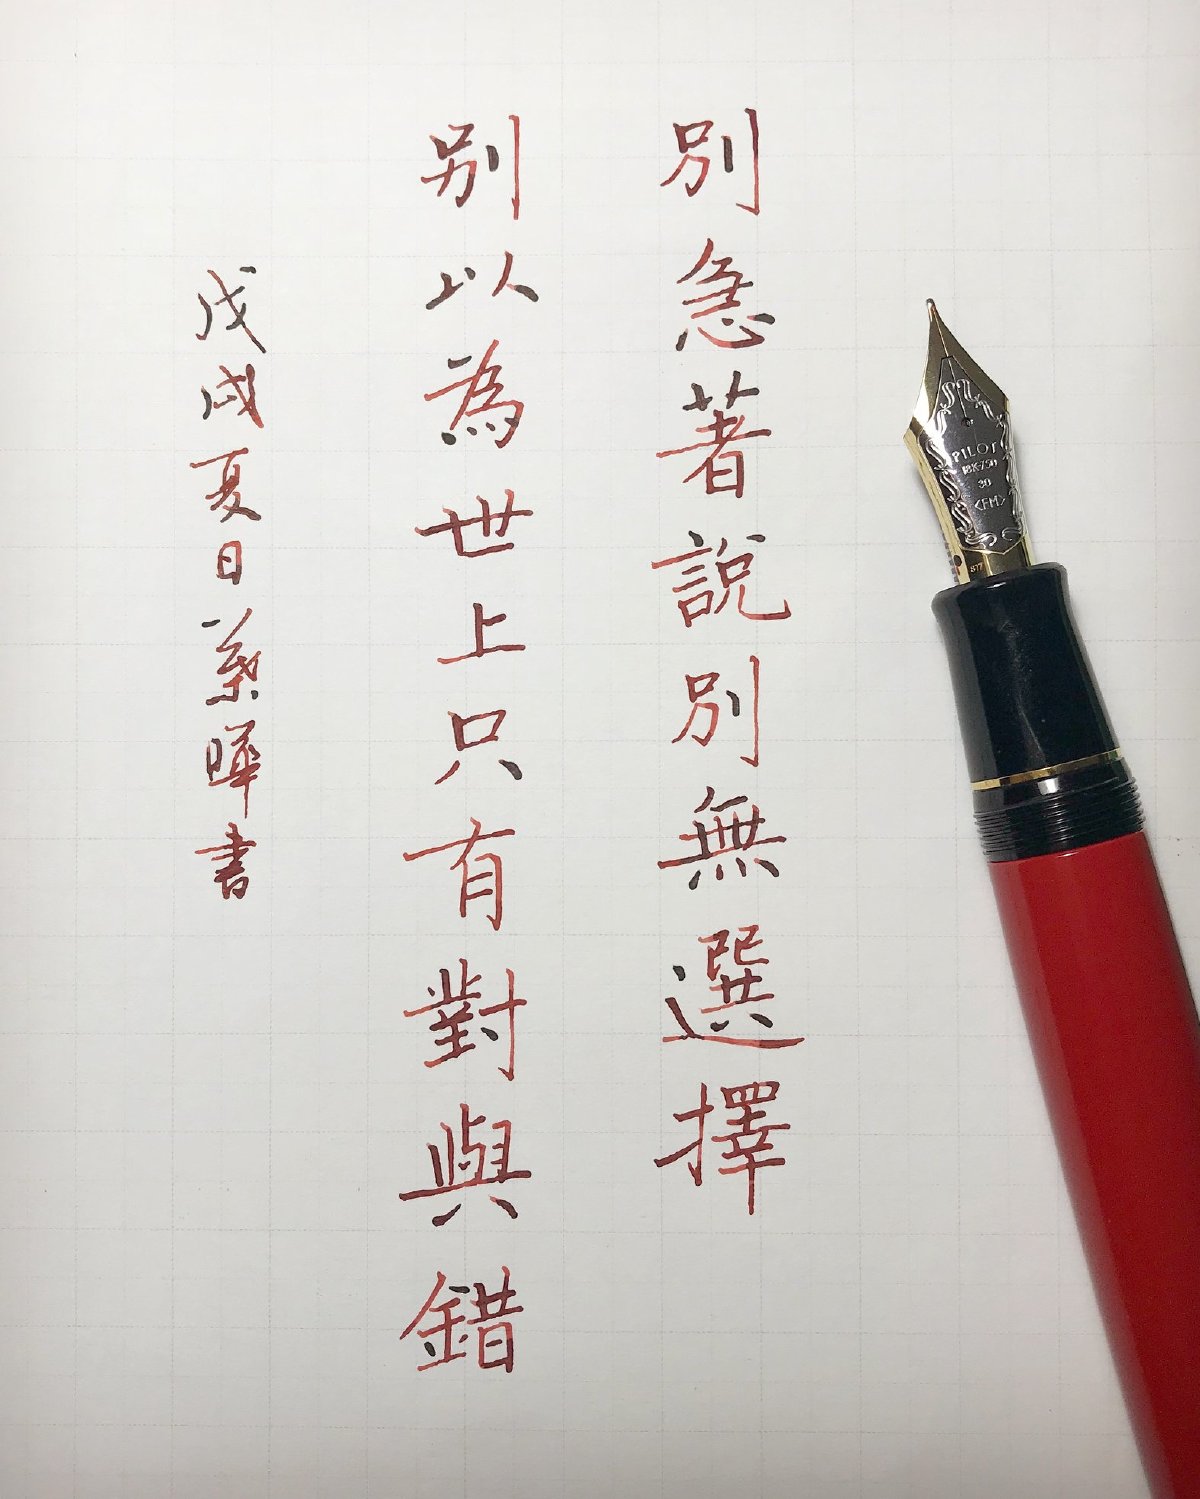 別急著說別無選擇
別以為世上只有對與錯
戊戌夏日葉曄書
PILOT
18K-750
30
<FM>
877